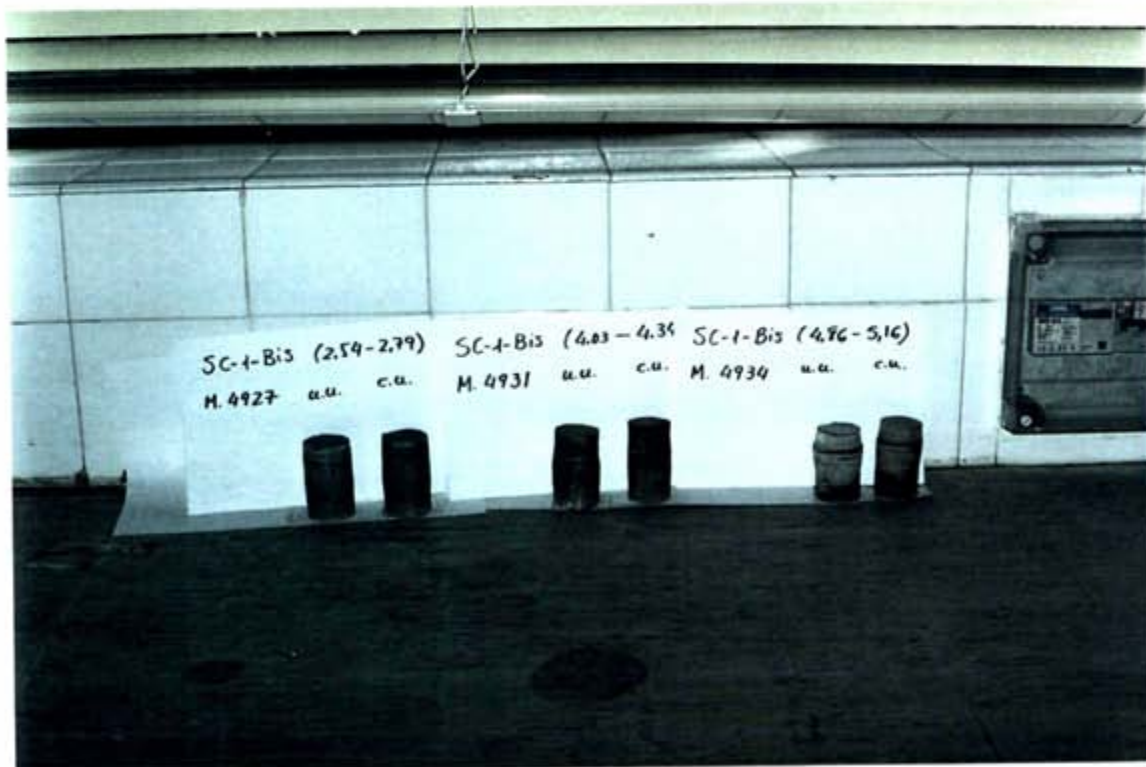 SC-1-Bis (2,54-2,79)
M. 4927 u.u. c.u.
SC-1-Bis (4.03-4.34
M. 4931 u.u. c.u.
SC-1-Bis (4,86-5,16)
M. 4934 u.u. c.u.